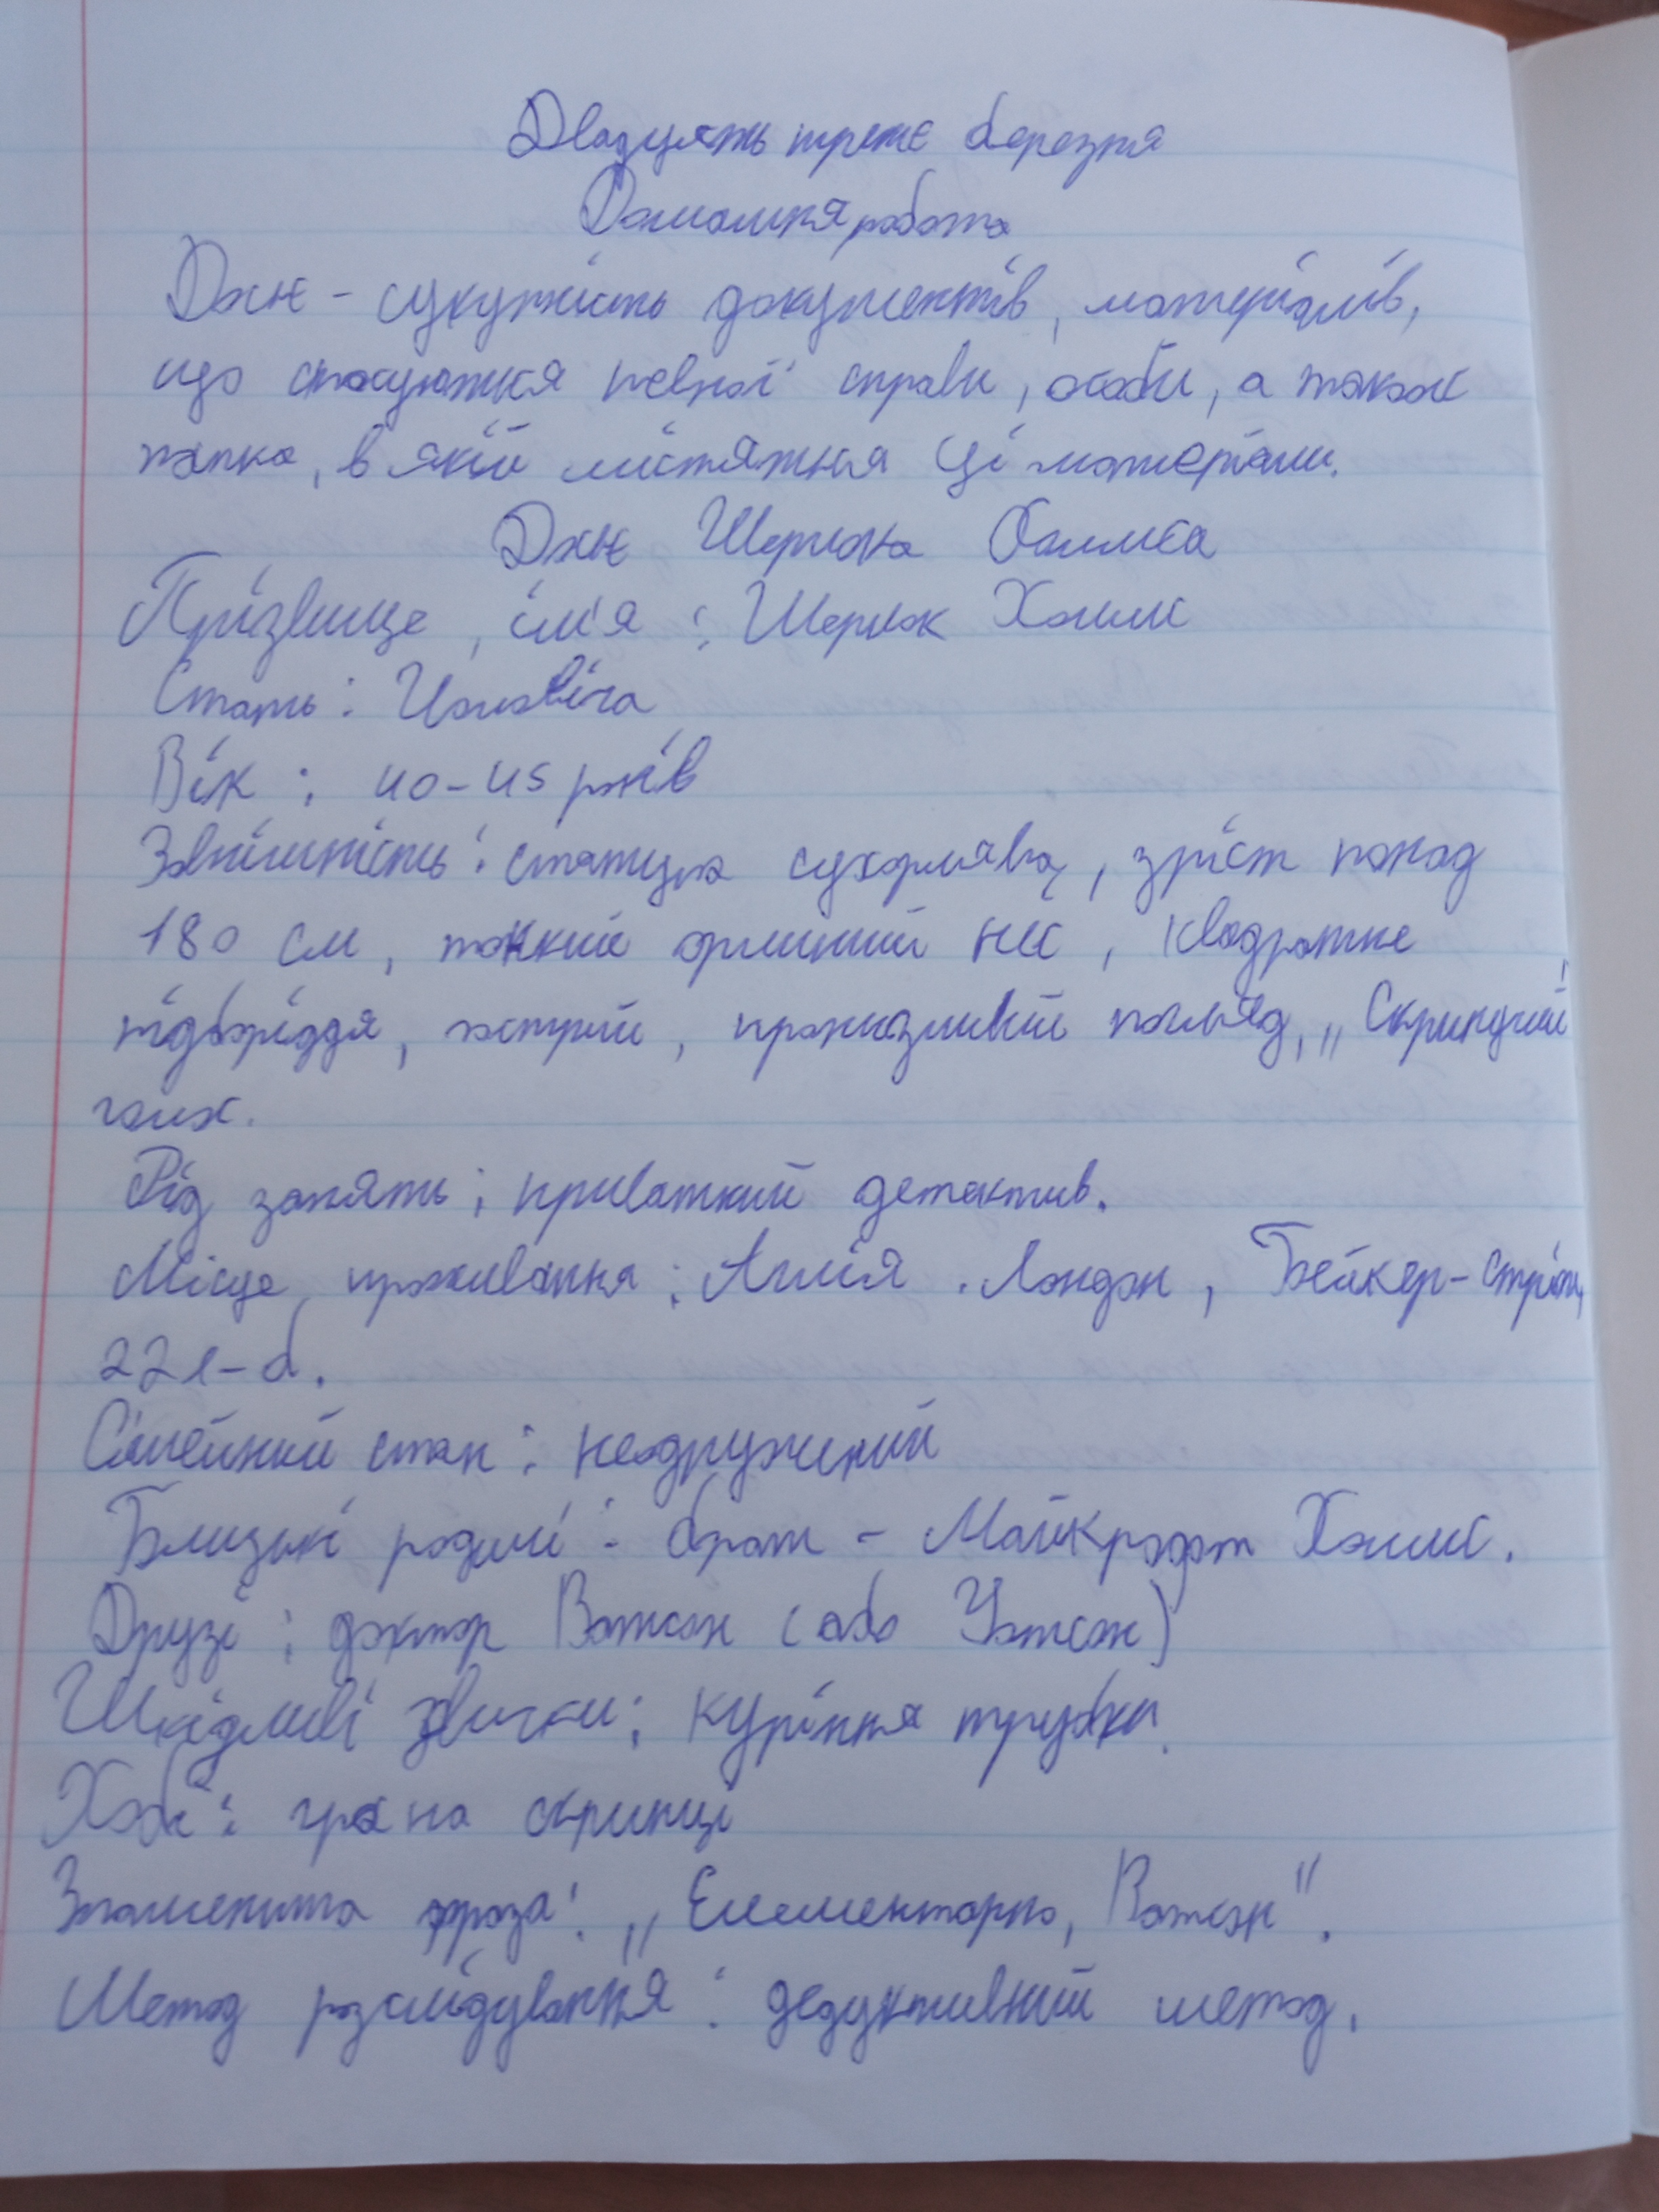 Двадцять третє березня
Домашня робота
Досьє - сукупність документів, матеріалів,
що стосуються певної справи, особи, а також
папка, в якій містяться ці матеріали.
Досьє Шерлока Холмса
Прізвище, ім'я : Шерлок Холмс
Стать : Чоловіча
Вік : 40-45 років
Зовнішність : статура сухорлява, зріст понад
180 см, тонкий орлиний ніс, квадратне
підборіддя, гострий, пронизливий погляд, „Скрипучий"
голос.
Рід занять : приватний детектив.
Місце проживання : Англія. Лондон, Бейкер-стріт,
221-б.
Сімейний стан : неодружений
Близькі родичі : брат - Майкрофт Холмс.
Друзі : доктор Ватсон (або Уотсон)
Шкідливі звички : куріння трубки.
Хобі : гра на скрипці
Знаменита фраза : „Елементарно, Ватсон".
Метод розслідування : дедуктивний метод.